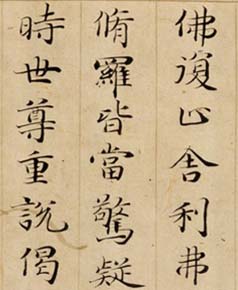 佛復止舍利弗
脩羅皆當驚疑
時世尊重說偈